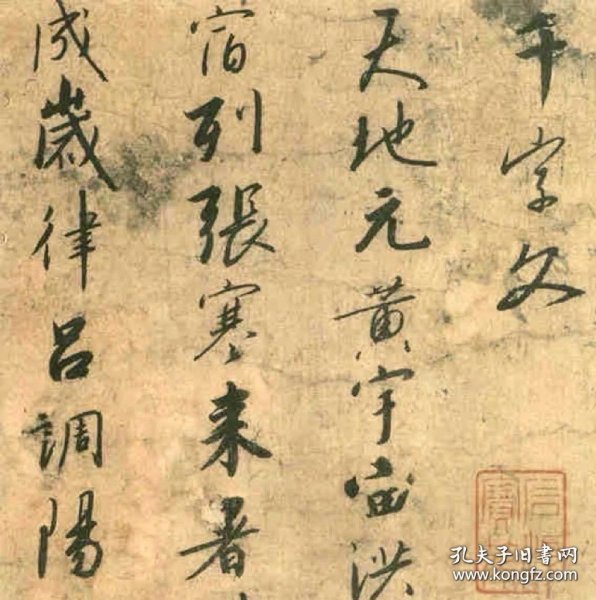 千字文
天地元黄宇宙洪
宿列張寒来暑
成歲律呂調陽
孔夫子旧書网
www.kongfz.com